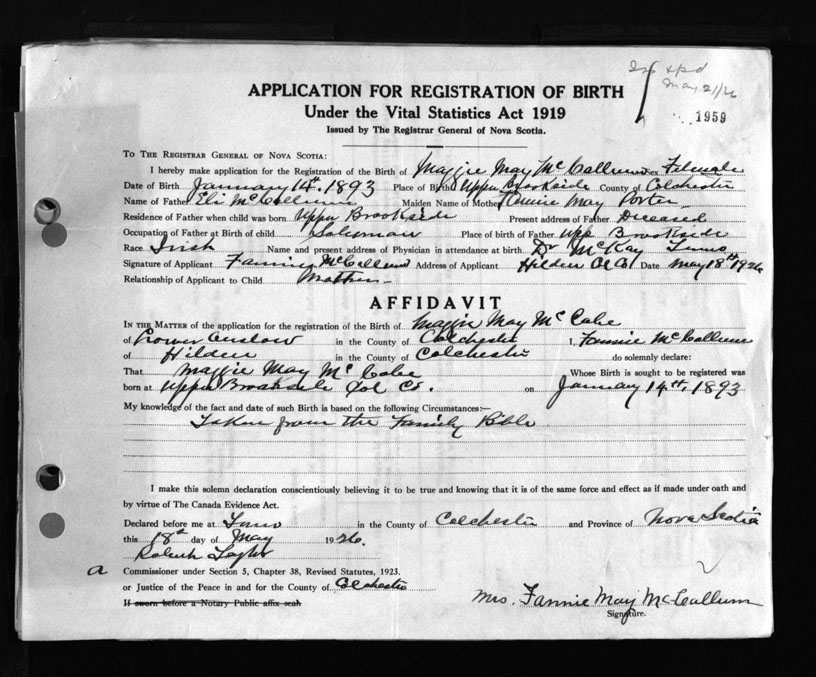 May 21/26
APPLICATION FOR REGISTRATION OF BIRTH
Under the Vital Statistics Act 1919
1959
Issued by The Registrar General of Nova Scotia.
To The Registrar General of Nova Scotia:
I hereby make application for the Registration of the Birth of Maggie May McCallum Sex Female
Date of Birth January 14th. 1893 Place of Birth Upper Brookside County of Colchester
Name of Father Eli McCallum Maiden Name of Mother Fannie May Porter
Residence of Father when child was born Upper Brookside Present address of Father Deceased
Occupation of Father at Birth of child Place of birth of Father Upp Brookside
Race Irish Name and present address of Physician in attendance at birth Dr McKay Truro
Signature of Applicant Fannie McCallum Address of Applicant Hilden Col Co Date May 18th 1926
Relationship of Applicant to Child Mother
AFFIDAVIT
In the Matter of the application for the registration of the Birth of Maggie May McCabe
of Lower Onslow in the County of Colchester I, Fannie McCallum
of Hilden in the County of Colchester do solemnly declare:
That Maggie May McCabe Whose Birth is sought to be registered was
born at Upper Brookside Col Co. on January 14th, 1893
My knowledge of the fact and date of such Birth is based on the following Circumstances:—
Taken from the Family Bible
I make this solemn declaration conscientiously believing it to be true and knowing that it is of the same force and effect as if made under oath and
by virtue of The Canada Evidence Act.
Declared before me at Truro in the County of Colchester and Province of Nova Scotia
this 18th day of May 1926.
a Commissioner under Section 5, Chapter 38, Revised Statutes, 1923.
or Justice of the Peace in and for the County of Colchester
If sworn before a Notary Public affix seal.
Mrs. Fannie May McCallum
Signature.